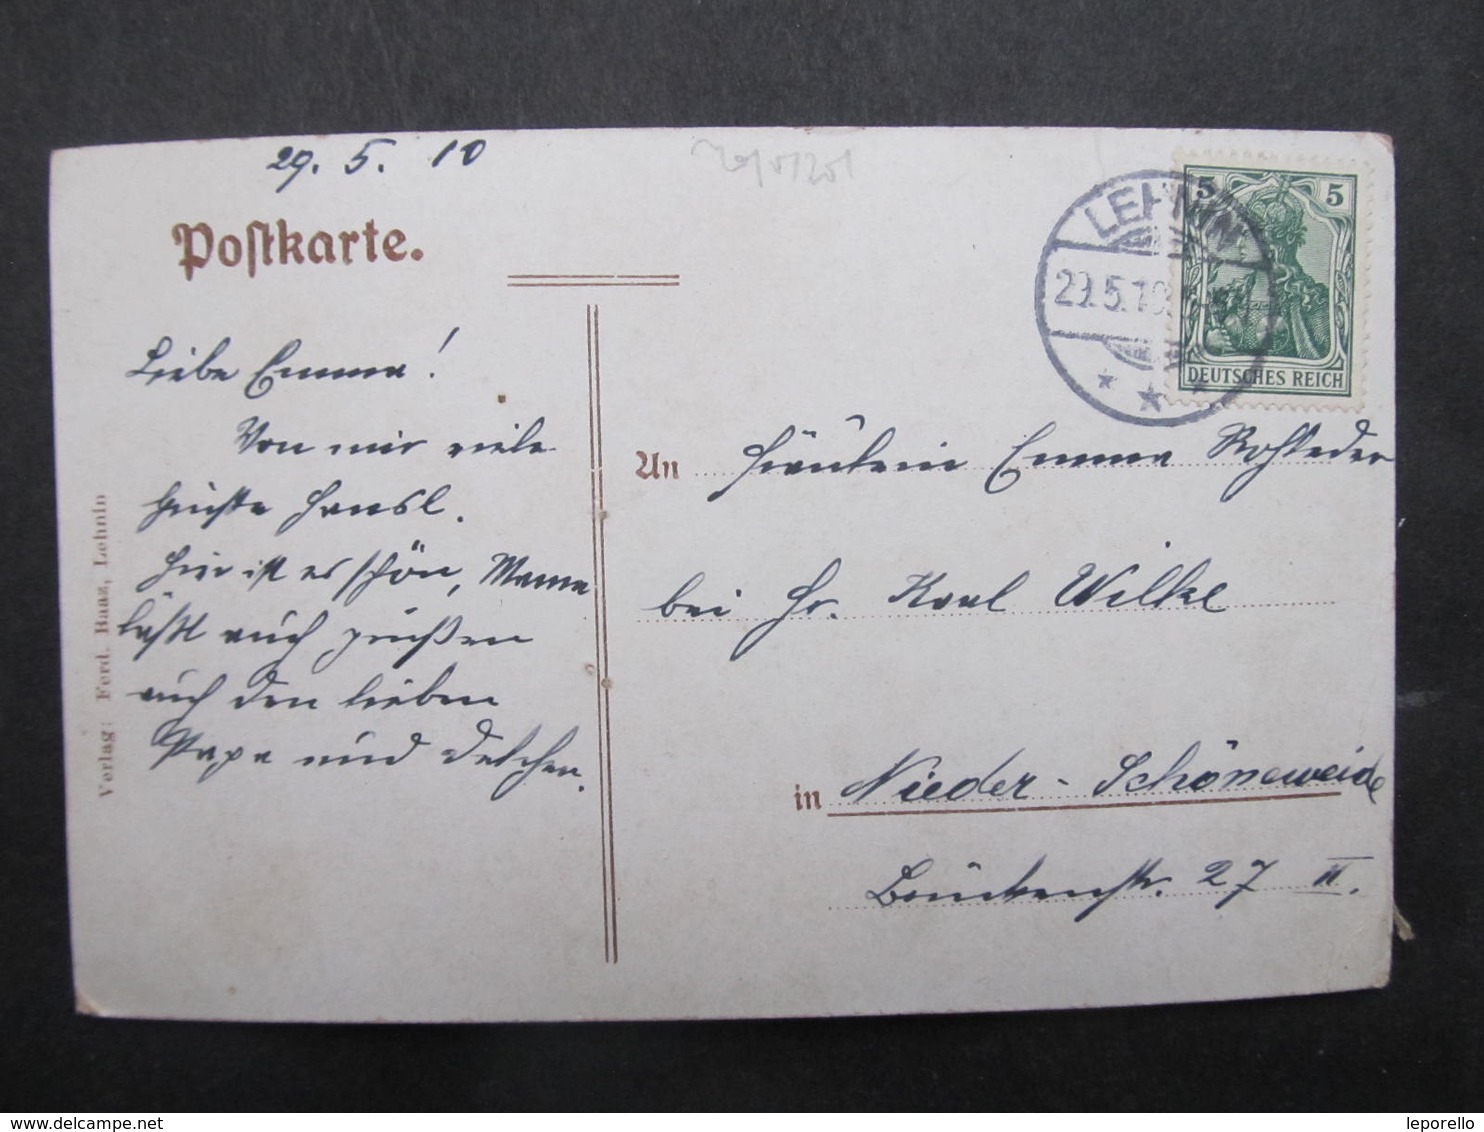 29. 5. 10
Postkarte.
Liebe Emma!
Von mir viele
Grüsse Hansl.
Hier ist es schön, Mama
läßt auch grüßen
auch den lieben
Papa und Delchen.
Verlag: Ferd. Baaz, Lehnin
LEHNIN
29.5.10
5 5
DEUTSCHES REICH
An Fräulein Emma Rohleder
bei Hr. Karl Wilke
in Nieder-Schöneweide
Brückenstr. 27 II.
delcampe.net
leporello